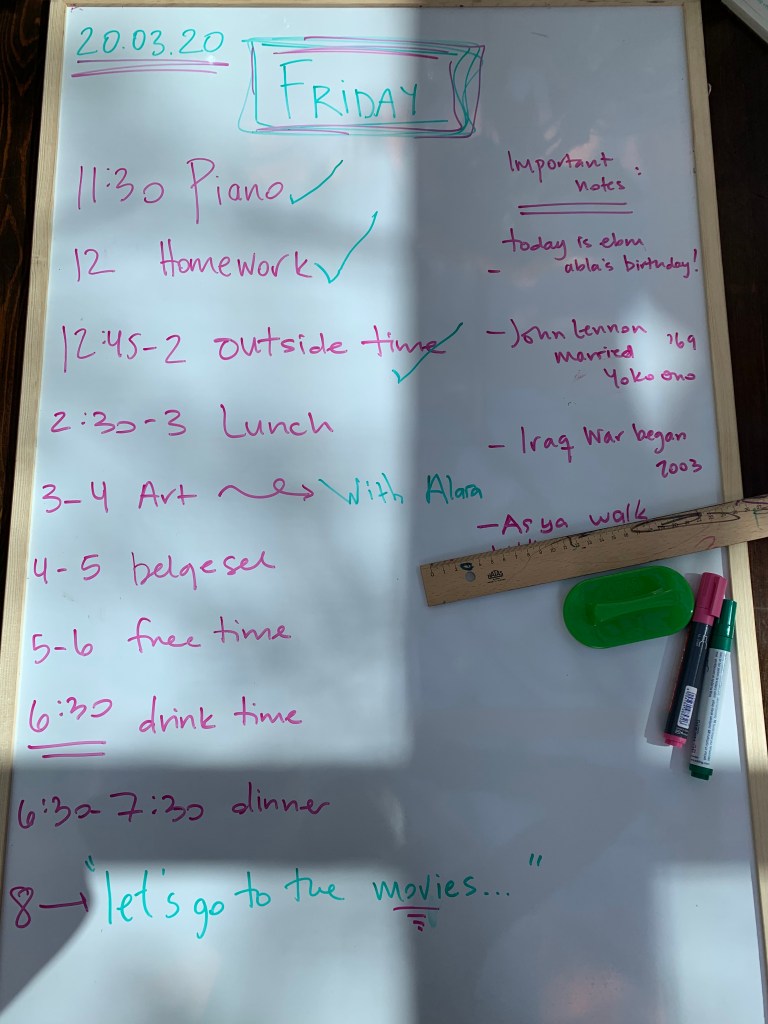 20.03.20
FRIDAY
11:30 Piano
12 Homework
12:45-2 outside time
2:30-3 Lunch
3-4 Art → With Alara
4-5 belgesel
5-6 free time
6:30 drink time
6:30-7:30 dinner
8→ "let's go to the movies..."
Important
notes :
- today is ebru
abla's birthday!
- John Lennon
married '69
Yoko ono
- Iraq War began
2003
- Asya walk